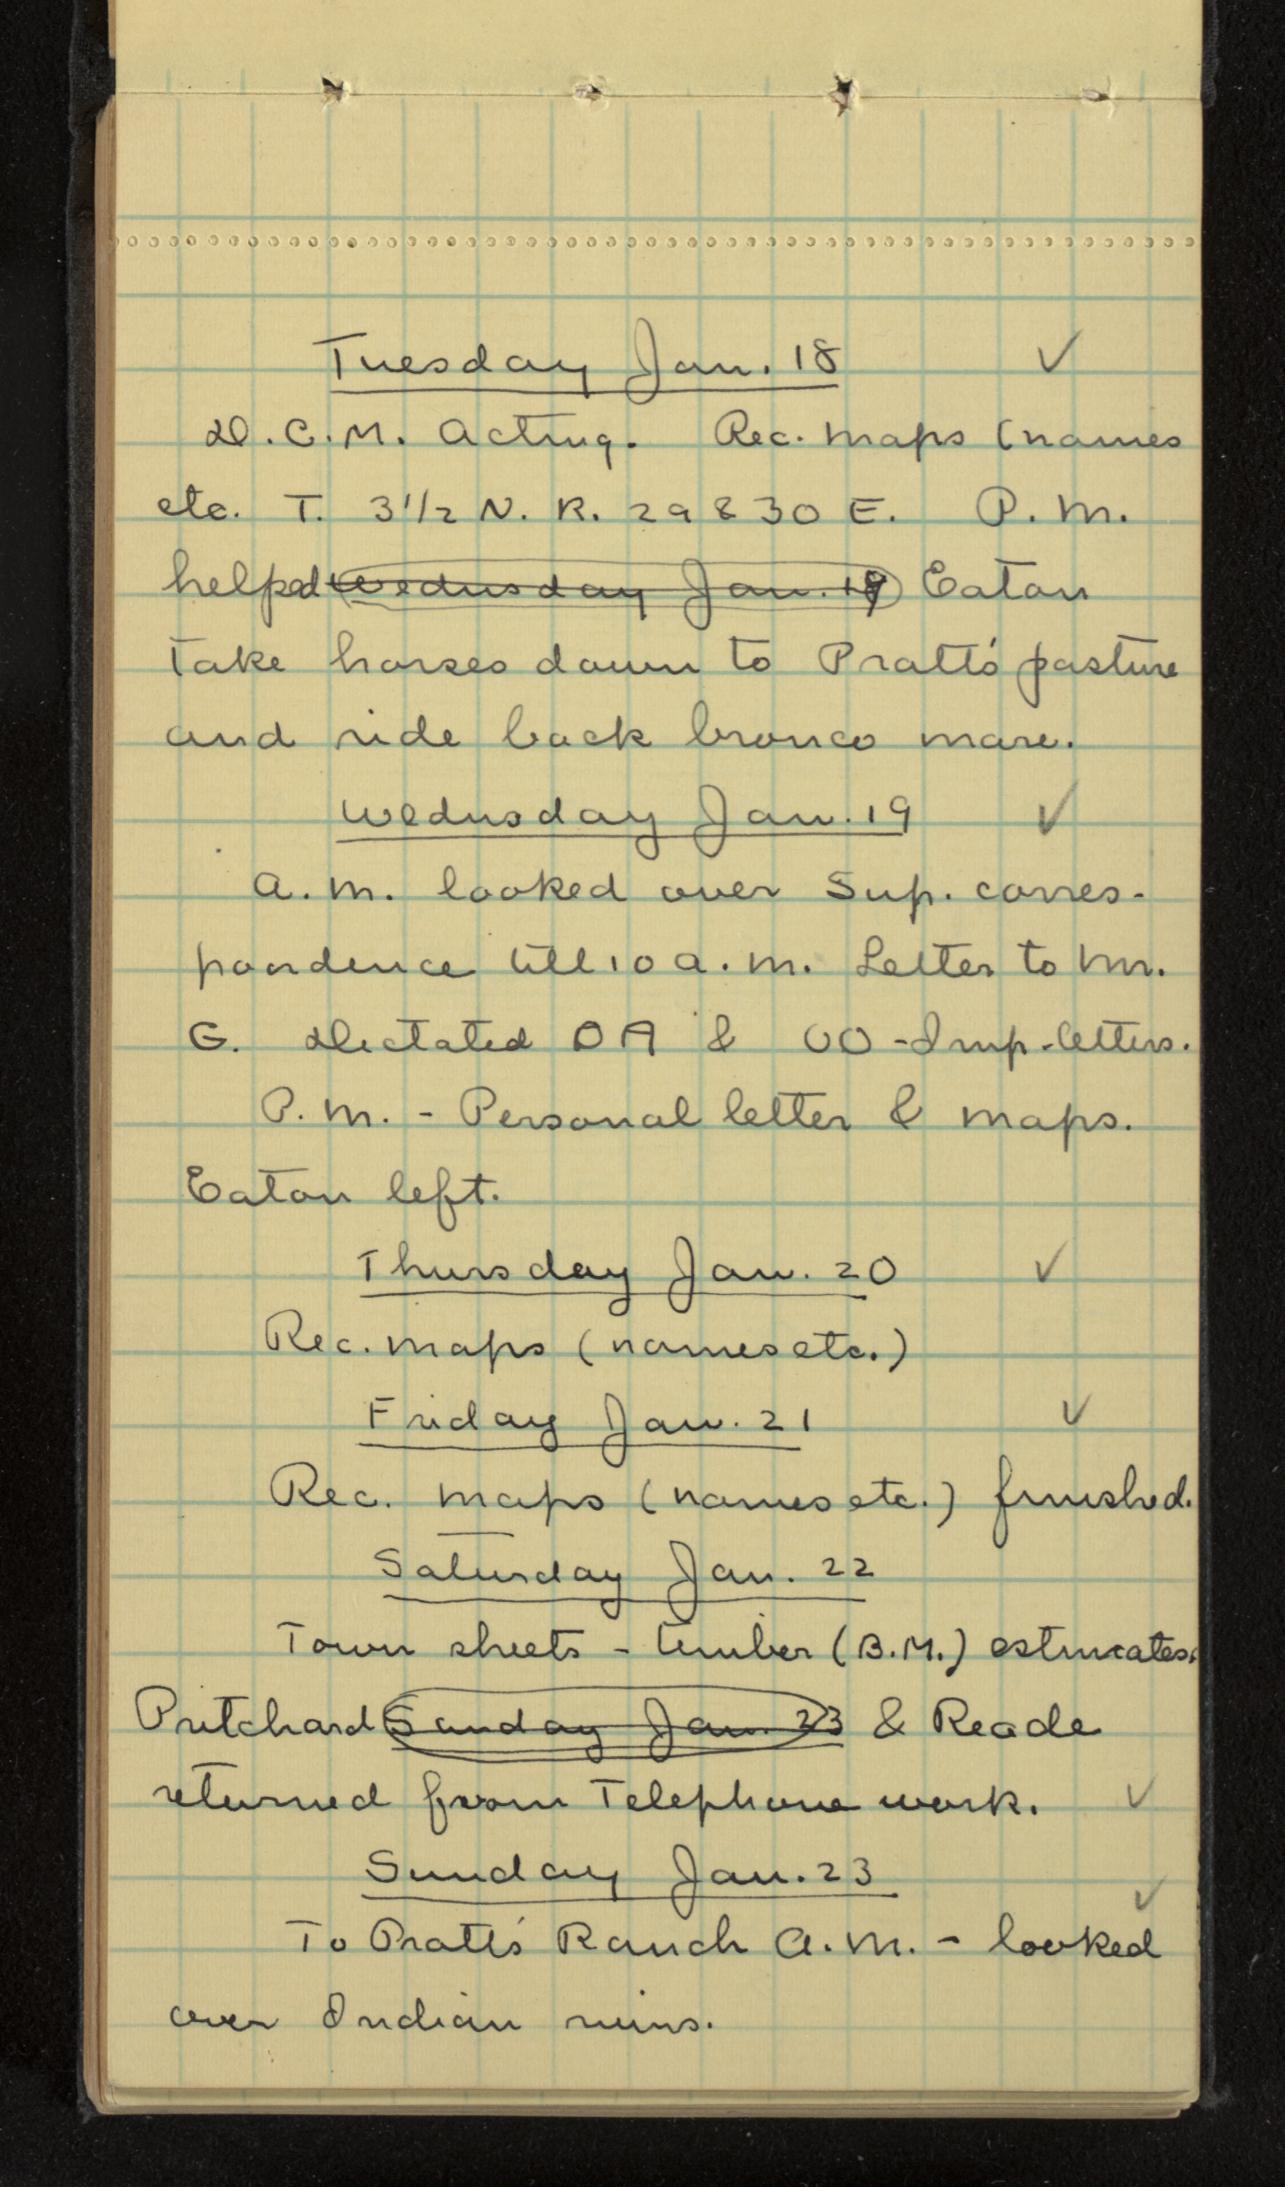 Tuesday Jan. 18 ✓
D.C.M. Acting. Rec. maps (names
etc. T. 3 1/2 N. R. 29 & 30 E. P.M.
helped Wednsday Jan. 19 Eaton
take horses down to Pratt's pasture
and ride back bronco mare.
Wednsday Jan. 19 ✓
A.M. looked over Sup. corres-
pondence till 10 a.m. Letter to Mr.
G. Dictated OA & UO - Imp. letters.
P.M. - Personal letter & maps.
Eaton left.
Thursday Jan. 20 ✓
Rec. maps (names etc.)
Friday Jan. 21 ✓
Rec. maps (names etc.) finished.
Saturday Jan. 22
Town sheets - timber (B.M.) estimates.
Pritchard Sunday Jan. 23 & Reade
returned from Telephone work. ✓
Sunday Jan. 23 ✓
To Pratt's Ranch A.M. - looked
over Indian ruins.